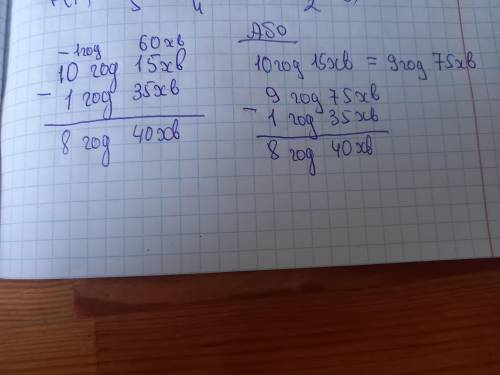 -1год 60хв
10 год 15хв
- 1 год 35хв
8 год 40хв
АБО
10год 15хв = 9год 75хв
9 год 75хв
- 1 год 35хв
8 год 40хв